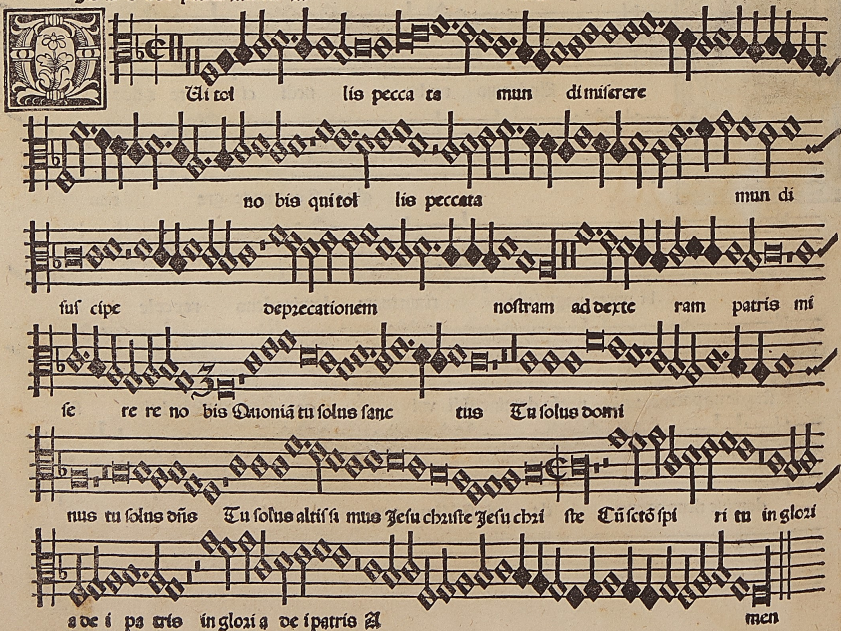 Ui tol lis pecca ta mun di miserere
no bis qui tol lis peccata mun di
sus cipe deprecationem nostram ad dexte ram patris mi
se re re no bis Quoniã tu solus sanc tus Tu solus domi
nus tu solus dñs Tu solus altis si mus Jesu christe Jesu chri ste Cũ sctõ spi ri tu in glori
a de i pa tris in glori a de i patris A men